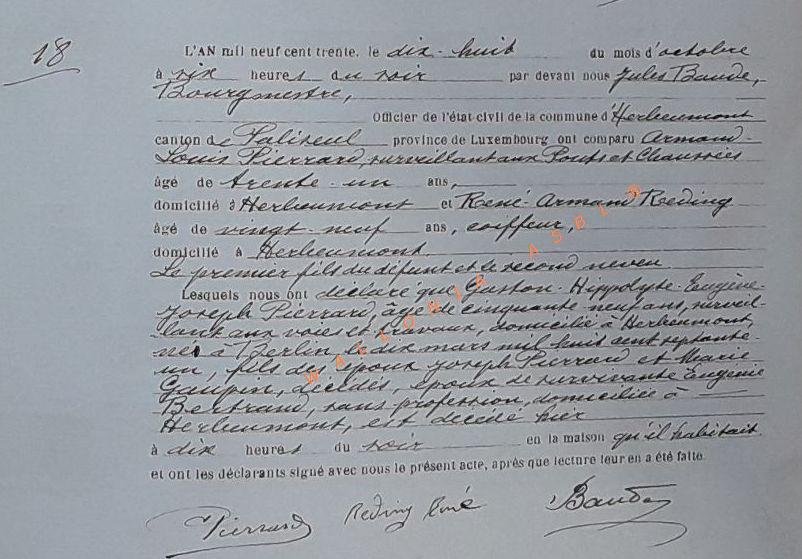 18
L'AN mil neuf cent trente, le dix-huit du mois d'octobre
à six heures du soir par devant nous Jules Baude,
Bourgmestre,
Officier de l'état civil de la commune d'Herbeumont
canton de Paliseul province de Luxembourg ont comparu Armand-
Louis Pierrard, surveillant aux Ponts et Chaussées
âgé de trente-un ans,
domicilié à Herbeumont et René-Armand Reding
âgé de vingt-neuf ans, coiffeur,
domicilié à Herbeumont.
Le premier fils du défunt et le second neveu
Lesquels nous ont déclaré que Gaston-Hippolyte-Eugène-
Joseph Pierrard, âgé de cinquante-neuf ans, surveil-
lant aux voies et travaux, domicilié à Herbeumont,
né à Berlin, le dix mars mil huit cent septante-
un, fils des époux Joseph Pierrard et Marie
Gaupin, décédés, époux de survivante Eugénie
Bertrand, sans profession, domiciliée à
Herbeumont, est décédé hier
à dix heures du soir en la maison qu'il habitait
et ont les déclarants signé avec nous le présent acte, après que lecture leur en a été faite.
Pierrard Reding René Baude
WALLONIA ASBL ©